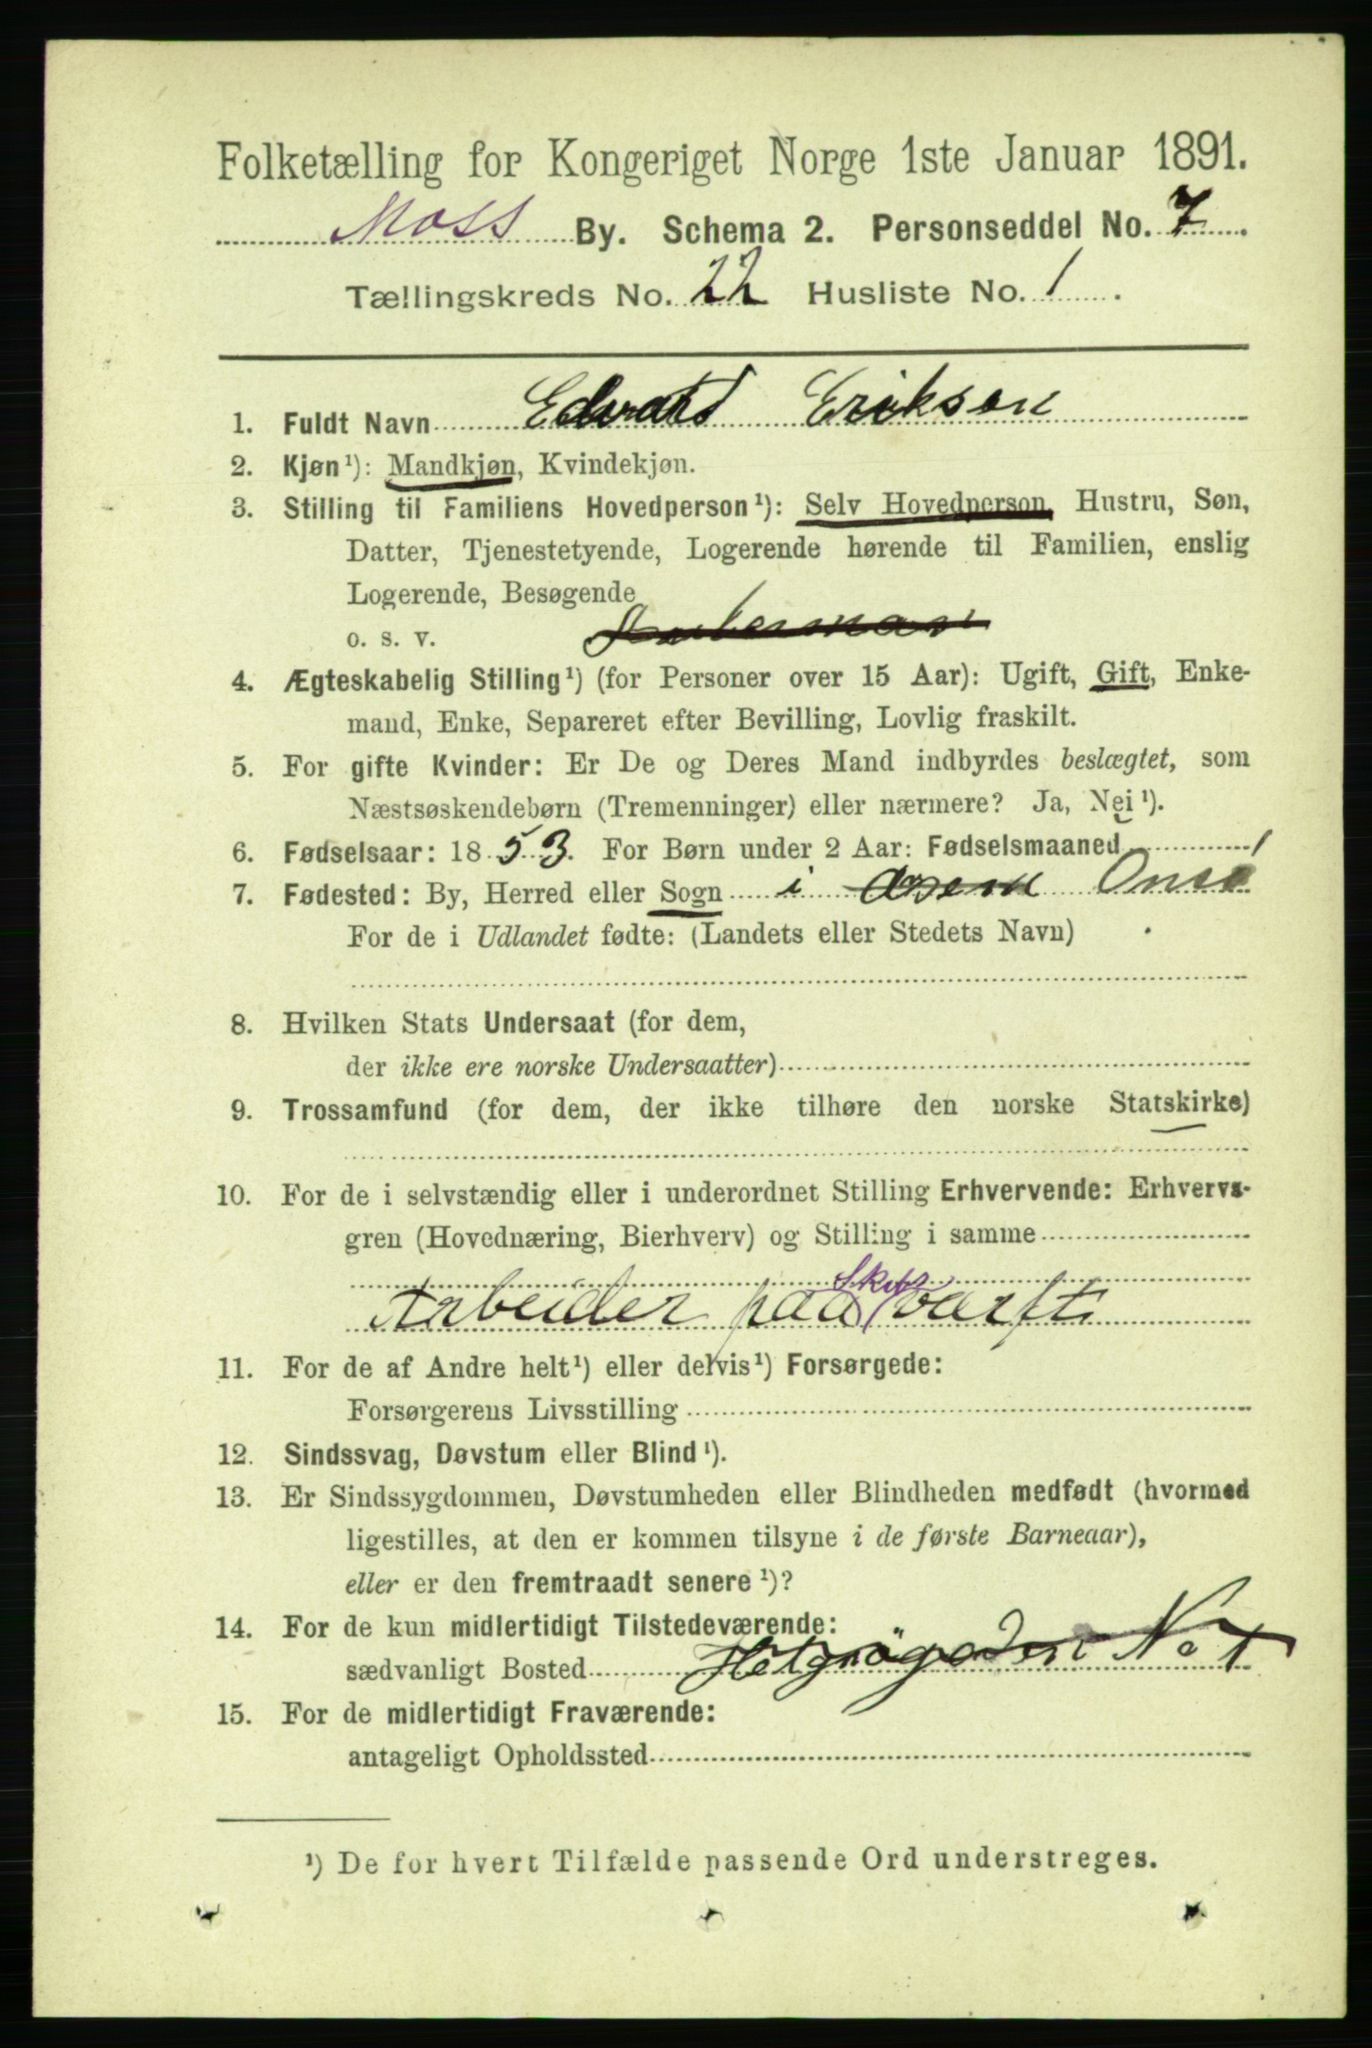 Folketælling for Kongeriget Norge 1ste Januar 1891.
Moss By. Schema 2. Personseddel No. 7.
Tællingskreds No. 22 Husliste No. 1.
1. Fuldt Navn Edvard Erikson
2. Kjøn¹): Mandkjøn, Kvindekjøn.
3. Stilling til Familiens Hovedperson¹): Selv Hovedperson, Hustru, Søn,
Datter, Tjenestetyende, Logerende hørende til Familien, enslig
Logerende, Besøgende
o. s. v.
4. Ægteskabelig Stilling¹) (for Personer over 15 Aar): Ugift, Gift, Enke-
mand, Enke, Separeret efter Bevilling, Lovlig fraskilt.
5. For gifte Kvinder: Er De og Deres Mand indbyrdes beslægtet, som
Næstsøskendebørn (Tremenninger) eller nærmere? Ja, Nei¹).
6. Fødselsaar: 1853. For Børn under 2 Aar: Fødselsmaaned
7. Fødested: By, Herred eller Sogn i Onsø
For de i Udlandet fødte: (Landets eller Stedets Navn)
8. Hvilken Stats Undersaat (for dem,
der ikke ere norske Undersaatter)
9. Trossamfund (for dem, der ikke tilhøre den norske Statskirke)
10. For de i selvstændig eller i underordnet Stilling Erhvervende: Erhvervs-
gren (Hovednæring, Bierhverv) og Stilling i samme
Skips
Arbeider paa værft
11. For de af Andre helt¹) eller delvis¹) Forsørgede:
Forsørgerens Livsstilling
12. Sindssvag, Døvstum eller Blind¹).
13. Er Sindssygdommen, Døvstumheden eller Blindheden medfødt (hvormed
ligestilles, at den er kommen tilsyne i de første Barneaar),
eller er den fremtraadt senere¹)?
14. For de kun midlertidigt Tilstedeværende:
sædvanligt Bosted No 1
15. For de midlertidigt Fraværende:
antageligt Opholdssted
¹) De for hvert Tilfælde passende Ord understreges.